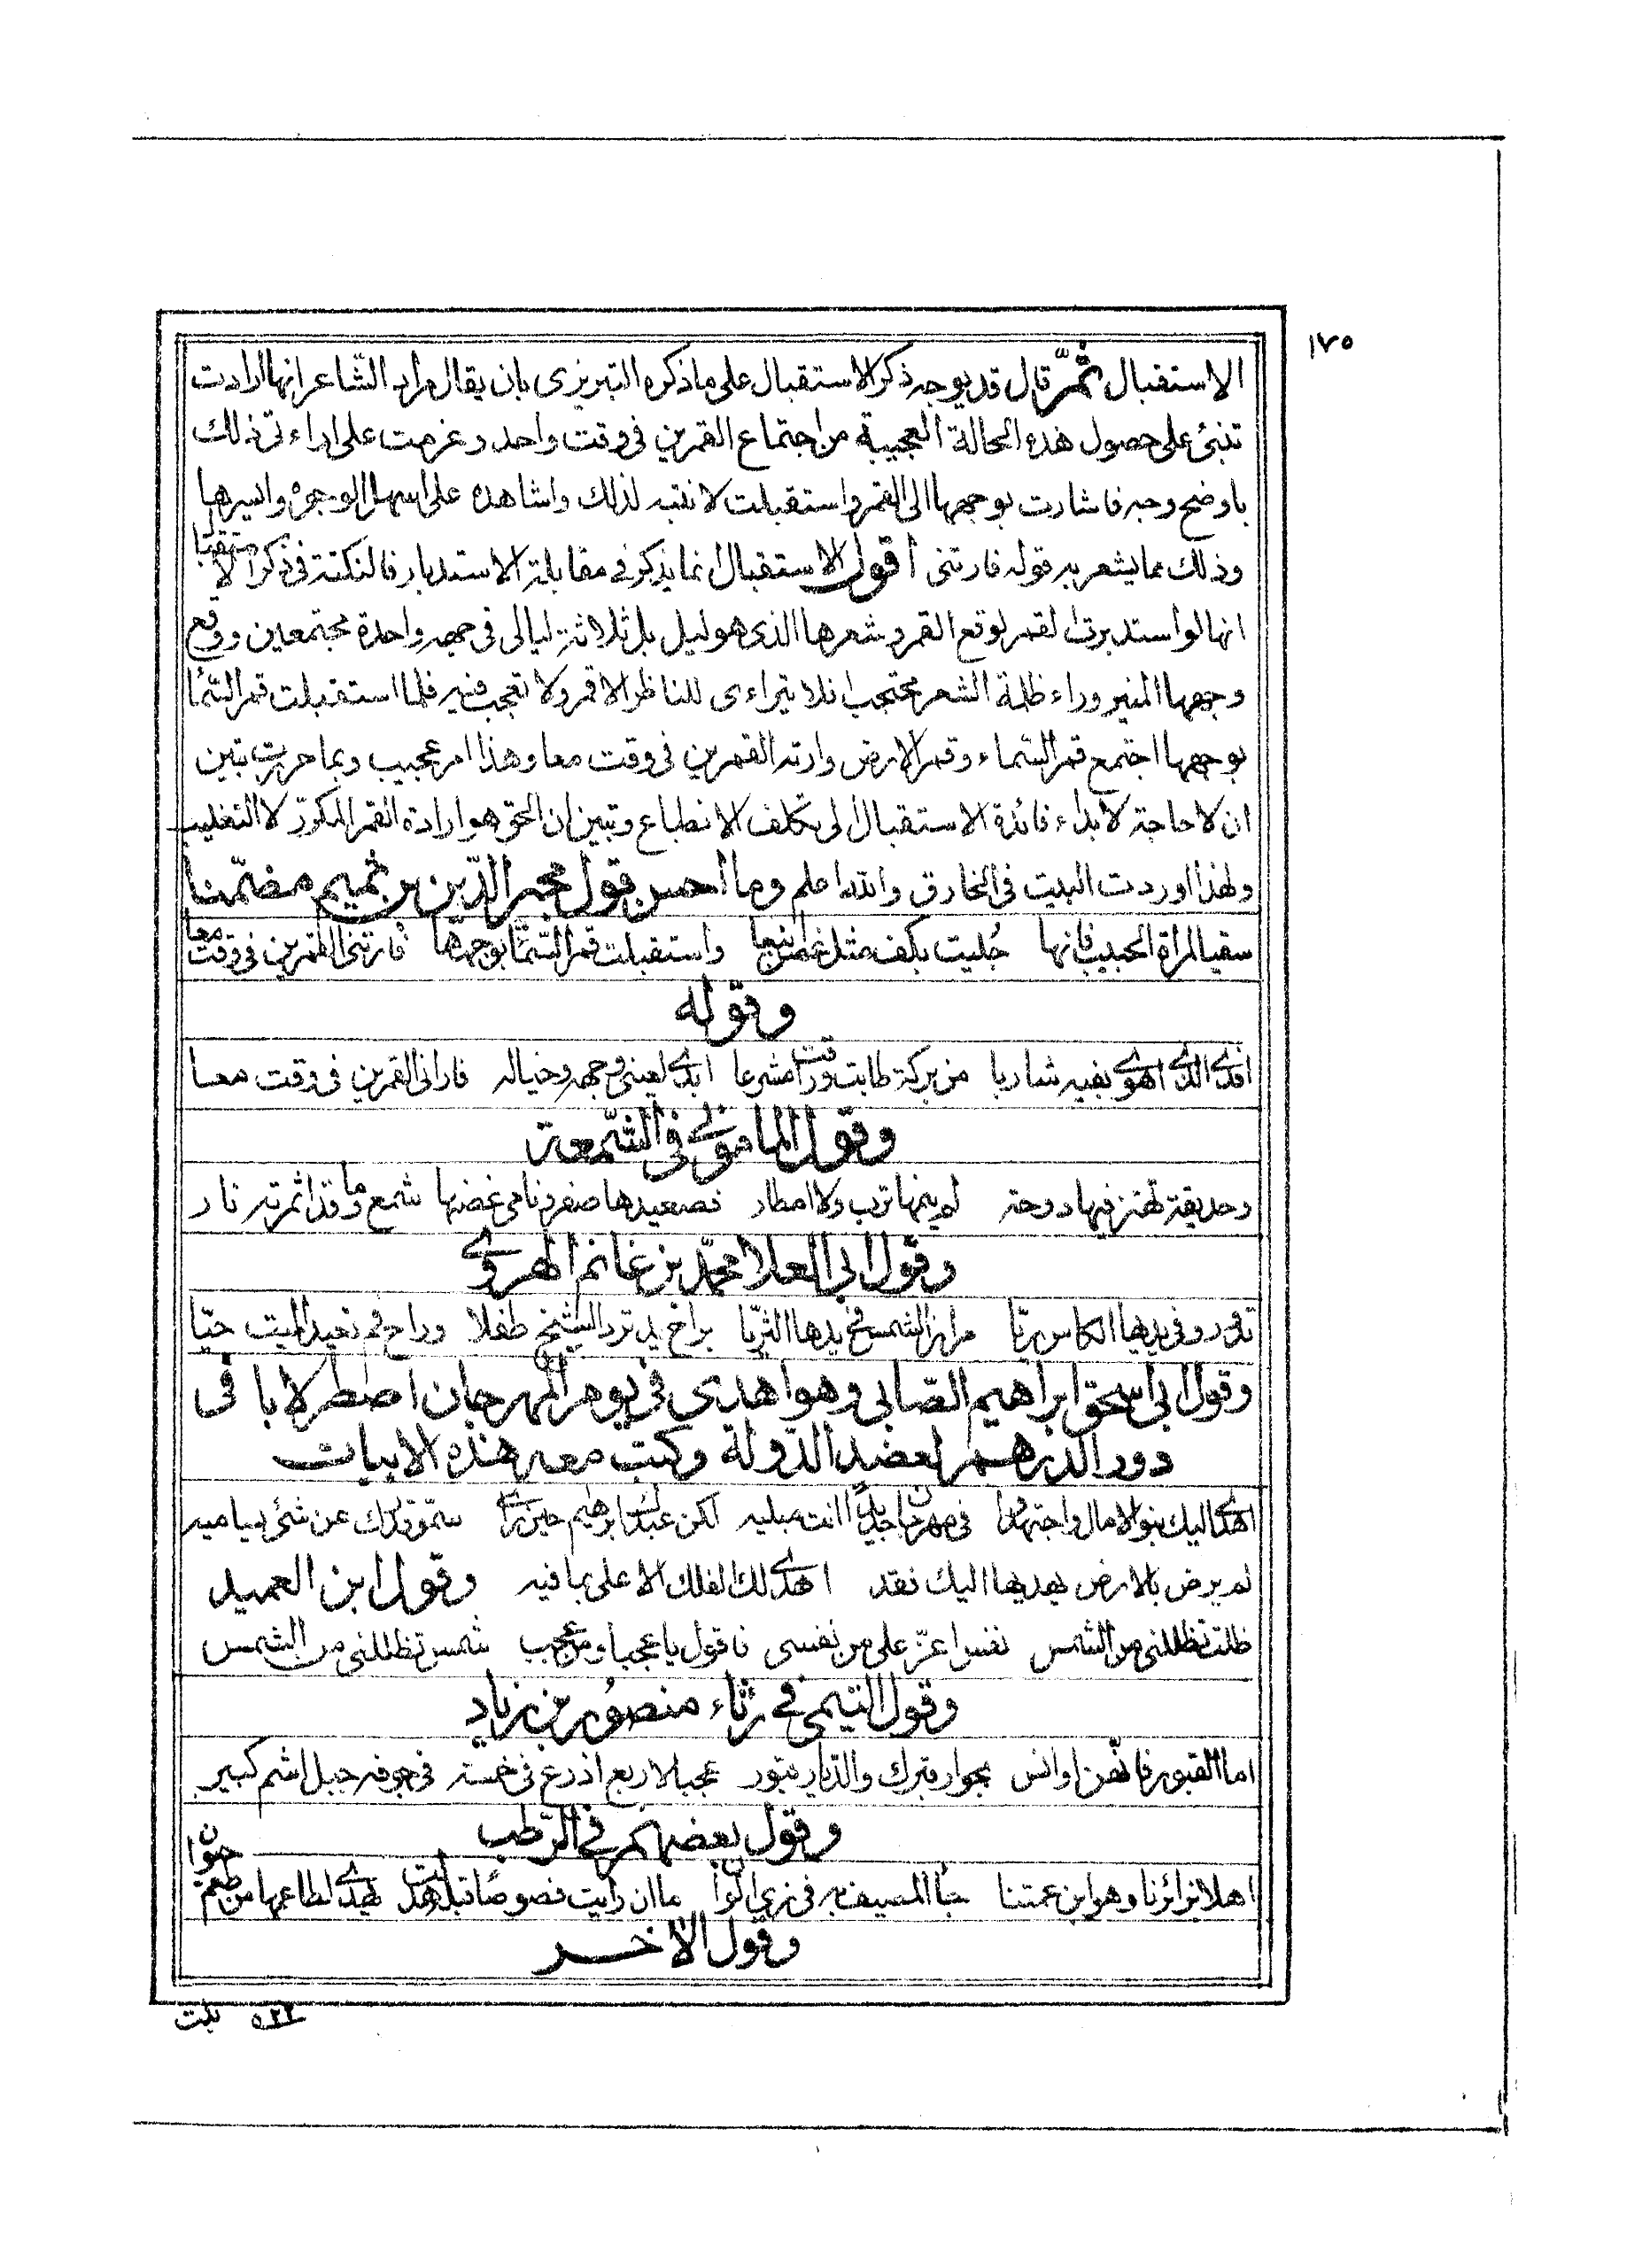 ١٧٥
الاستقبال ثمّ قال قد يوجه ذكر الاستقبال على ما ذكره التبريزى بان يقال مراد الشاعر انها ارادت
تنبئ على حصول هذه الحالة العجيبة من اجتماع القمرين فى وقت واحد وعزمت على اراءتى ذلك
باوضح وجه فاشارت بوجهها الى القمر واستقبلت لانتبه لذلك واشاهده على اسهل الوجوه وايسرها
وذلك مما يشعر به قوله فارتنى اقول الاستقبال انما يذكر فى مقابلة الاستدبار فالنكتة فى ذكر الاستقبال
انها لو استدبرت القمر لوقع القمر وشعرها الذى هو ليل بل ثلاثة ليالى فى جهة واحدة مجتمعين ووقع
وجهها المنير وراء ظلمة الشعر محتجبا فلا يتراءى للناظر الا قمر ولا تعجب فيه فلما استقبلت قمر السّما
بوجهها اجتمع قمر السّماء وقمر الارض وارته القمرين فى وقت معا وهذا امر عجيب وبما حررت تبين
ان لا حاجة لابداء فائدة الاستقبال الى تكلف الانطباع وتبين ان الحق هو ارادة القمر المكرّر لا التغليب
ولهذا اوردت البيت فى الخارق والله اعلم وما احسن قول مجير الدّين بن تميم مضمّنا
سقيا لمراة الحبيب فانها جُليت بكف مثل غصن اينعا واستقبلت قمر السّما بوجهها فارتنى القمرين فى وقت معا
وقوله
افدى الذى اهوى بفيه شاربا من بركة طابت ورقت مشرعا ابدى لعينى وجهه وخياله فارانى القمرين فى وقت معا
وقول المامونى فى الشّمعة
وحديقة تهتز فيها دوحة لم ينمها ترب ولا امطار فصعيدها صفر ونامى غصنها شمع وما قد اثمرته نار
وقول ابى العلا محمّد بن غانم الهروى
تدور وفى يديها الكاس ريّا من الشمس فى يدها الثريّا براح يد ترد الشيخ طفلا وراح فم تعيد الميت حيّا
وقول ابى اسحق ابراهيم الصّابى وهو اهدى فى يوم المهرجان اصطرلابا فى
دور الدرهم لعضد الدّولة وكتب معه هذه الابيات
اهدى اليك بنو الامال واجتهدوا فى مهرجان جديد انت مبليه لكن عبدك ابراهيم حين راى سمّو قدرك عن شئ يساميه
لم يرض بالارض يهديها اليك فقد اهدى لك الفلك الاعلى بما فيه وقول ابن العميد
ظلت تظللنى من الشمس نفس اعزّ على من نفسى فاقول يا عجبا ومن عجب شمس تظللنى من الشمس
وقول التيمى فى رثاء منصور بن زياد
اما القبور فانّهن اوانس بجوار قبرك والدّيار قبور عجبا لاربع اذرع فى خمسة فى جوفه جبل اشم كبير
وقول بعضهم فى الرّطب
اهلا بزائرنا وهو ابن عمتنا المصيف به فى زى الوان ما ان رايت فصوصا قبل تهدى لطاعمها من طعم حلوان
وقول الاخر
٥٢٢ بيت